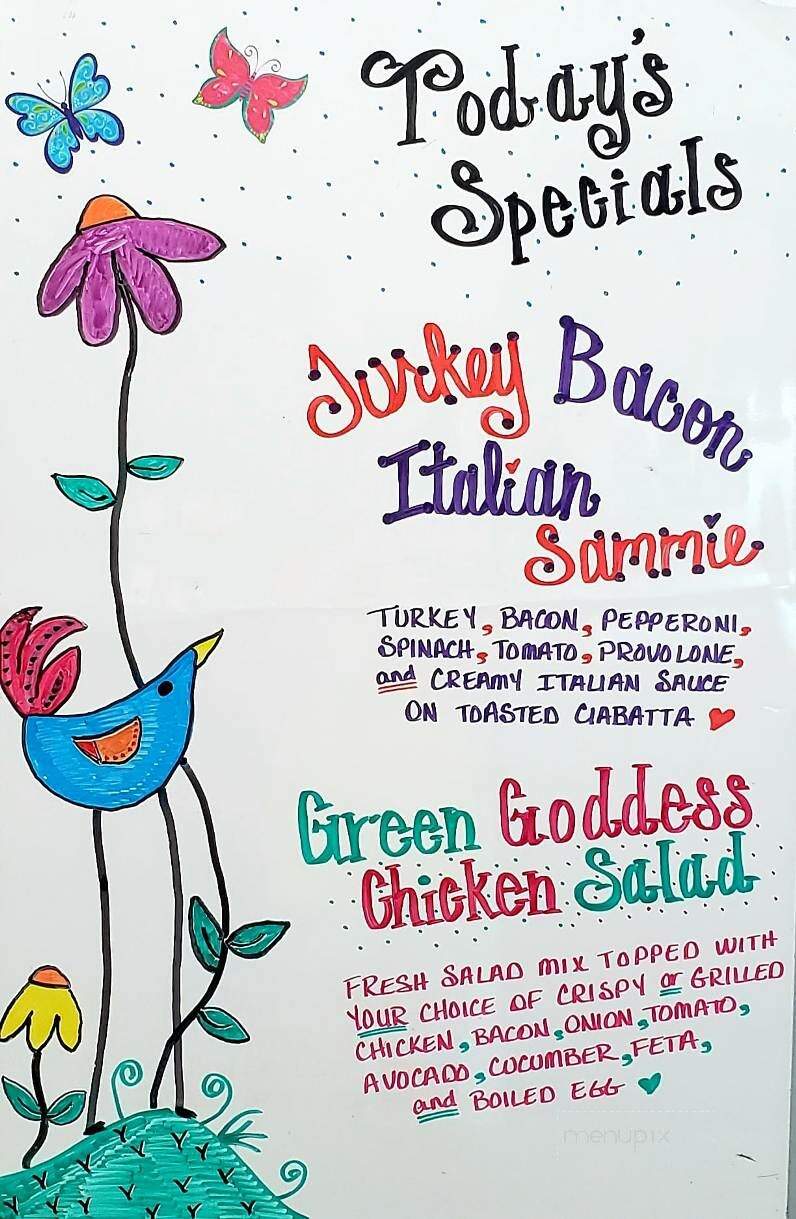 Today's
Specials
Turkey Bacon
Italian
Sammie
TURKEY, BACON, PEPPERONI,
SPINACH, TOMATO, PROVOLONE,
and CREAMY ITALIAN SAUCE
ON TOASTED CIABATTA
Green Goddess
Chicken Salad
FRESH SALAD MIX TOPPED WITH
YOUR CHOICE OF CRISPY or GRILLED
CHICKEN, BACON, ONION, TOMATO,
AVOCADO, CUCUMBER, FETA,
and BOILED EGG
menupix